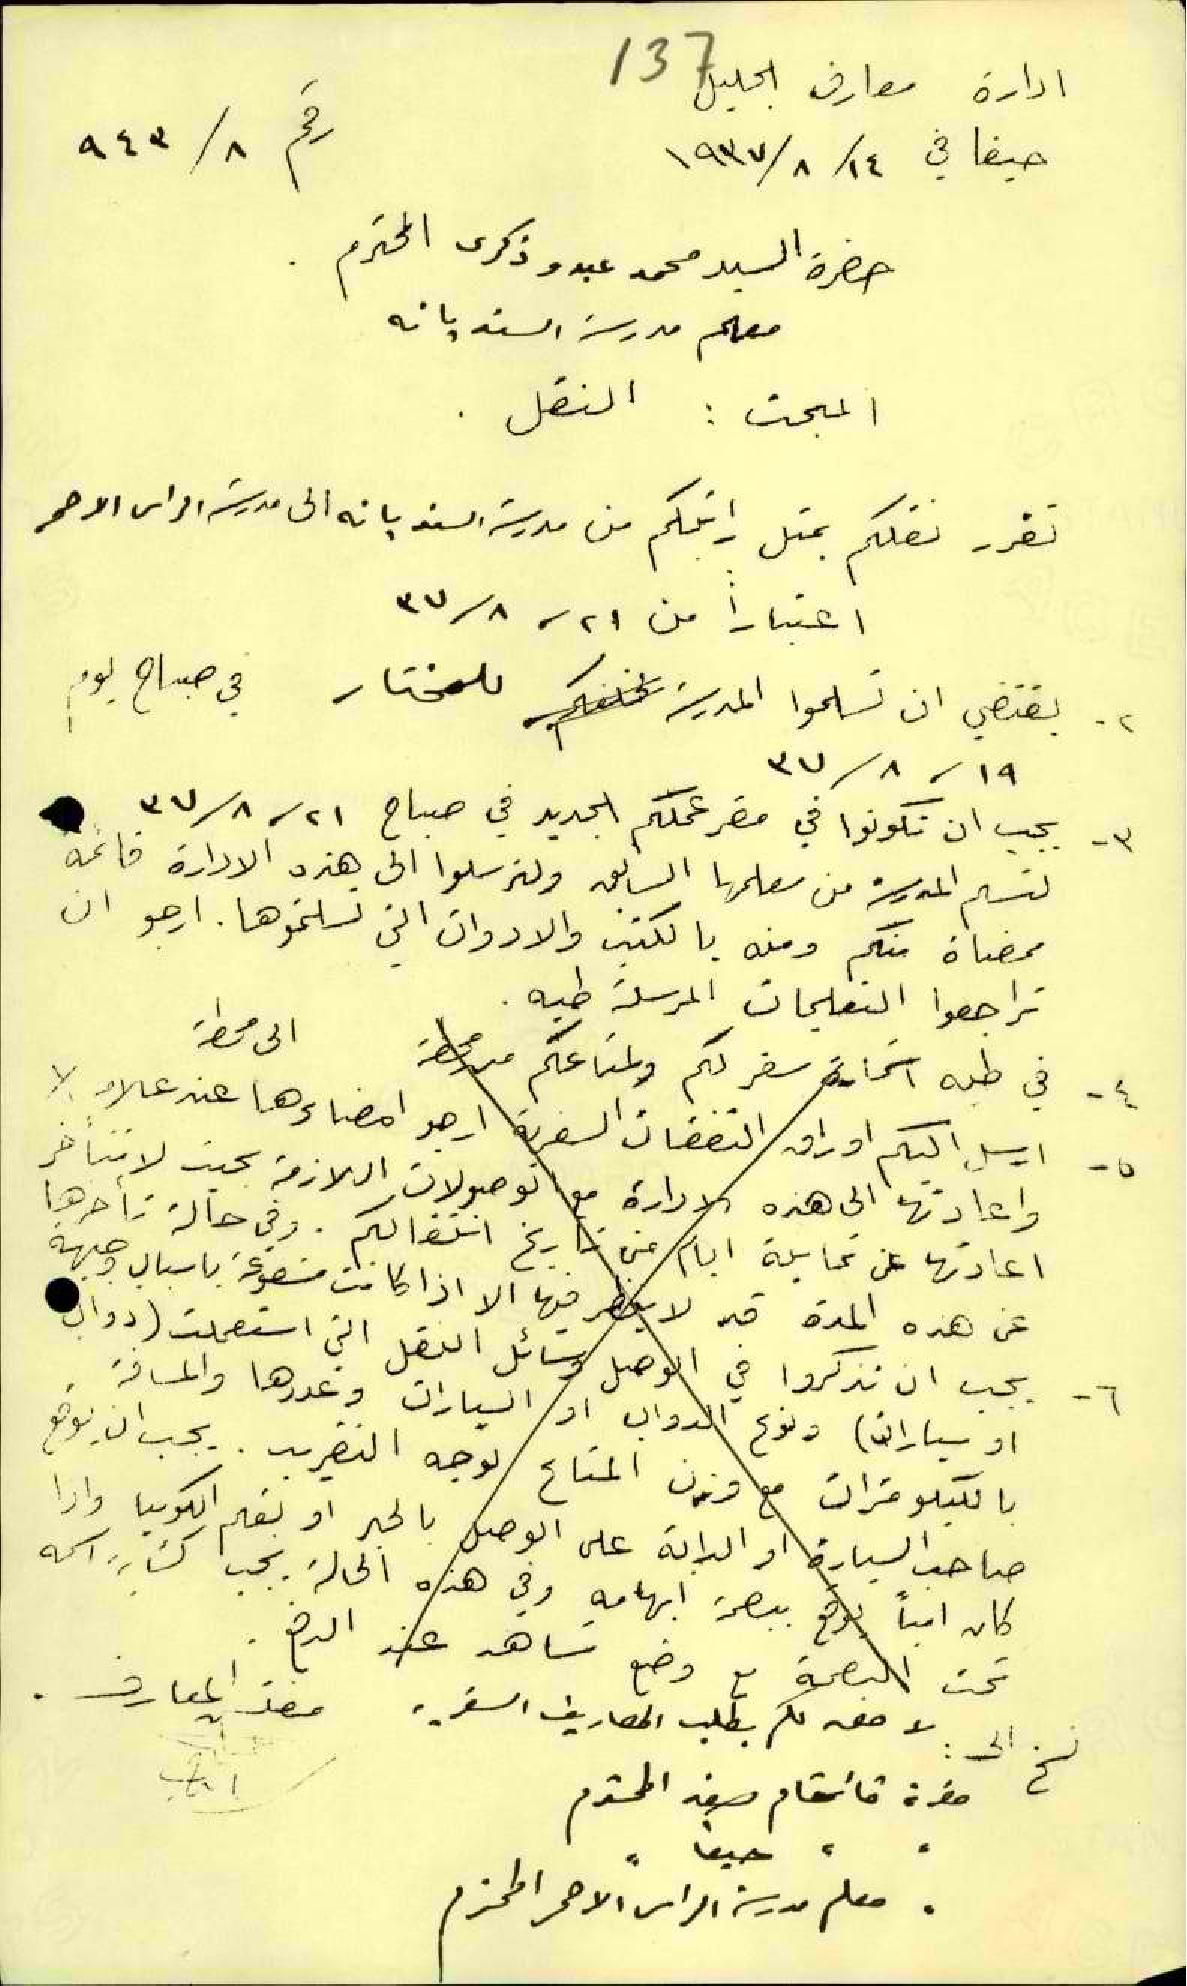 137
ادارة معارف الجليل
حيفا في ١٤/ ٨ /١٩٣٧ رقم ٨/ ٩٤٣
حضرة السيد محمد عبده ذكرى المحترم .
معلم مدرسة السنديانه
المبحث : النقل .
تقرر نقلكم بمثل راتبكم من مدرسة السنديانه الى مدرسة الراس الاحمر
اعتباراً من ٢١/ ٨/ ٣٧
٢- يقتضي ان تسلموا المدرسة لخلفكم للمختار في صباح يوم
١٩/ ٨/ ٣٧
٣- يجب ان تكونوا في مقر عملكم الجديد في صباح ٢١/ ٨/ ٣٧
لتسلم المدرسة من معلمها السابق ولترسلوا الى هذه الادارة قائمة
ممضاة منكم ومنه بالكتب والادوات التي تسلمتموها. ارجو ان
تراجعوا التعليمات المرسلة طيه .
٤- في طيه استمارة سفر لكم ولمتاعكم من محطة الى محطة
٥- ارسل اليكم اوراق النفقات السفرية ارجو امضاءها عند علامة x
واعادتها الى هذه الادارة مع الوصولات اللازمة بحيث لا تتأخر
اعادتها عن ثمانية ايام من تاريخ انتقالكم . وفي حالة تأخرها
عن هذه المدة قد لا ينظر فيها الا اذا كانت مشفوعة باسباب وجيهة
٦- يجب ان تذكروا في الوصل وسائل النقل التي استعملت (دواب
او سيارات) ونوع الدواب او السيارات وعددها والمسافة
بالكيلومترات مع وزن المتاع لوجه التقريب . يجب ان يوقع
صاحب السيارة او الدابة على الوصل بالحبر او بقلم الكوبيا واذا
كان امياً يوقع ببصمة ابهامه وفي هذه الحالة يجب كتابة اسمه
تحت البصمة مع وضع شاهد عند الدفع .
لا حق لكم بطلب المصاريف السفرية مفتش المعارف .
نسخ الى :
حضرة قائمقام صفد المحترم
" " حيفا "
" معلم مدرسة الراس الاحمر المحترم